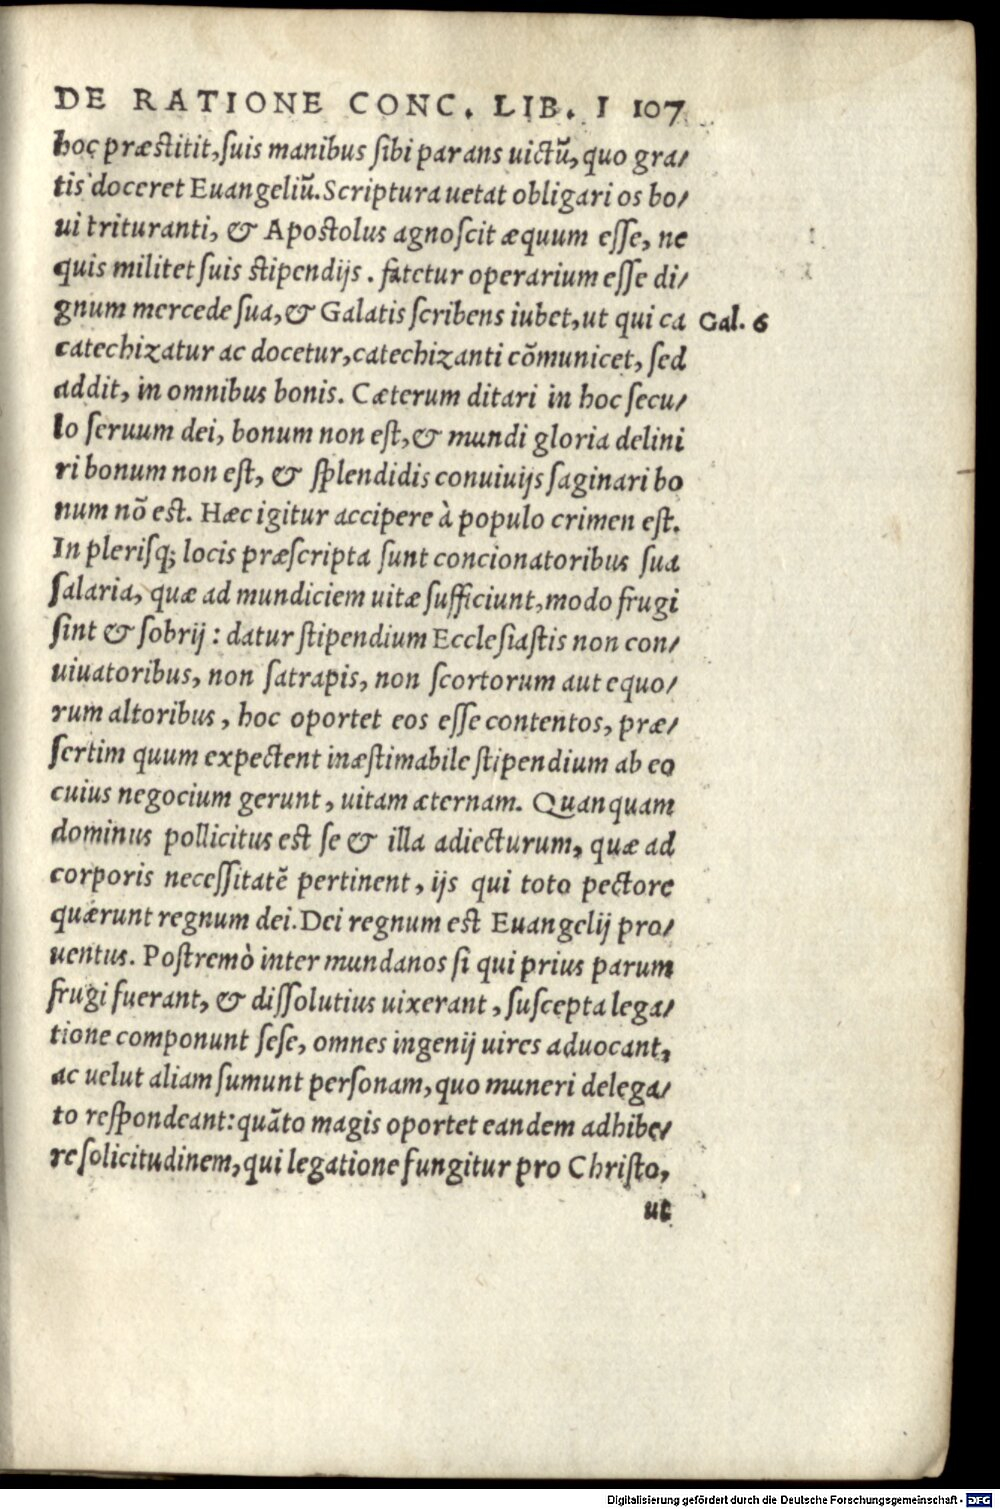 DE RATIONE CONC. LIB. I 107
hoc præstitit, suis manibus sibi parans uictũ, quo gra/
tis doceret Euangeliũ. Scriptura uetat obligari os bo/
ui trituranti, & Apostolus agnoscit æquum esse, ne
quis militet suis stipendijs. fatetur operarium esse di/
gnum mercede sua, & Galatis scribens iubet, ut qui ca Gal. 6
catechizatur ac docetur, catechizanti cõmunicet, sed
addit, in omnibus bonis. Cæterum ditari in hoc secu/
lo seruum dei, bonum non est, & mundi gloria delini
ri bonum non est, & splendidis conuiuijs saginari bo
num nõ est. Hæc igitur accipere à populo crimen est.
In plerisq; locis præscripta sunt concionatoribus sua
salaria, quæ ad mundiciem uitæ sufficiunt, modo frugi
sint & sobrij : datur stipendium Ecclesiastis non con/
uiuatoribus, non satrapis, non scortorum aut equo/
rum altoribus, hoc oportet eos esse contentos, præ/
sertim quum expectent inæstimabile stipendium ab eo
cuius negocium gerunt, uitam æternam. Quanquam
dominus pollicitus est se & illa adiecturum, quæ ad
corporis necessitatẽ pertinent, ijs qui toto pectore
quærunt regnum dei. Dei regnum est Euangelij pro/
uentus. Postremò inter mundanos si qui prius parum
frugi fuerant, & dissolutius uixerant, suscepta lega/
tione componunt sese, omnes ingenij uires aduocant,
ac uelut aliam sumunt personam, quo muneri delega/
to respondeant: quãto magis oportet eandem adhibe/
re solicitudinem, qui legatione fungitur pro Christo,
ut
Digitalisierung gefördert durch die Deutsche Forschungsgemeinschaft - DFG